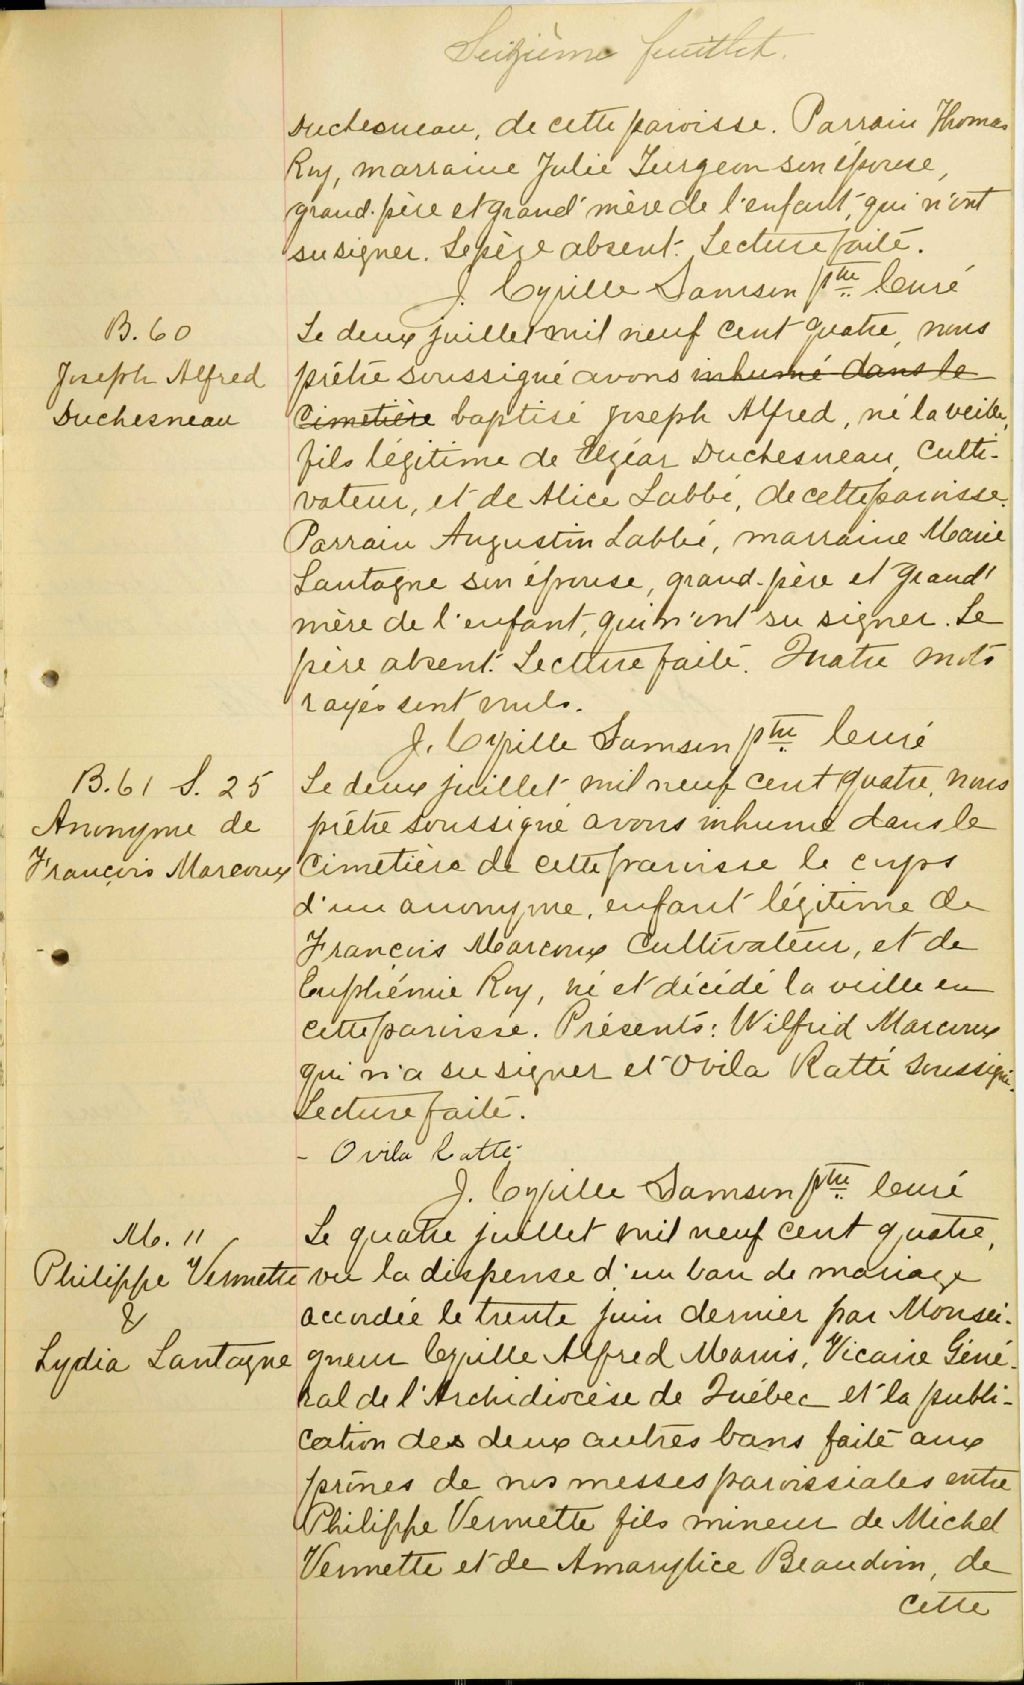 Seizième feuillet.
Duchesneau, de cette paroisse. Parrain Thomas
Roy, marraine Julie Turgeon son épouse,
grand-père et grand'mère de l'enfant, qui n'ont
su signer. Le père absent. Lecture faite.
J. Cyrille Samson ptre Curé
B. 60
Joseph Alfred
Duchesneau
Le deux juillet mil neuf cent quatre, nous
prêtre soussigné avons inhumé dans le
Cimetière baptisé Joseph Alfred, né la veille,
fils légitime de Elzéar Duchesneau, Culti-
vateur, et de Alice Labbé, de cette paroisse.
Parrain Augustin Labbé, marraine Marie
Lantagne son épouse, grand-père et grand'
mère de l'enfant, qui n'ont su signer. Le
père absent. Lecture faite. Quatre mots
rayés sont nuls.
J. Cyrille Samson ptre Curé
B. 61 S. 25
Anonyme de
François Marcoux
Le deux juillet mil neuf cent quatre, nous
prêtre soussigné avons inhumé dans le
Cimetière de cette paroisse le corps
d'un anonyme, enfant légitime de
François Marcoux Cultivateur, et de
Euphémie Roy, né et décédé la veille en
cette paroisse. Présents: Wilfrid Marcoux
qui n'a su signer et Ovila Ratté soussigné.
Lecture faite.
- Ovila Ratté
J. Cyrille Samson ptre Curé
M. 11
Philippe Vermette
&
Lydia Lantagne
Le quatre juillet mil neuf cent quatre,
vu la dispense d'un ban de mariage
accordée le trente juin dernier par Monsei-
gneur Cyrille Alfred Marois, Vicaire Géné-
ral de l'Archidiocèse de Québec et la publi-
cation des deux autres bans faite aux
prônes de nos messes paroissiales entre
Philippe Vermette fils mineur de Michel
Vermette et de Amarylice Beaudoin, de
cette